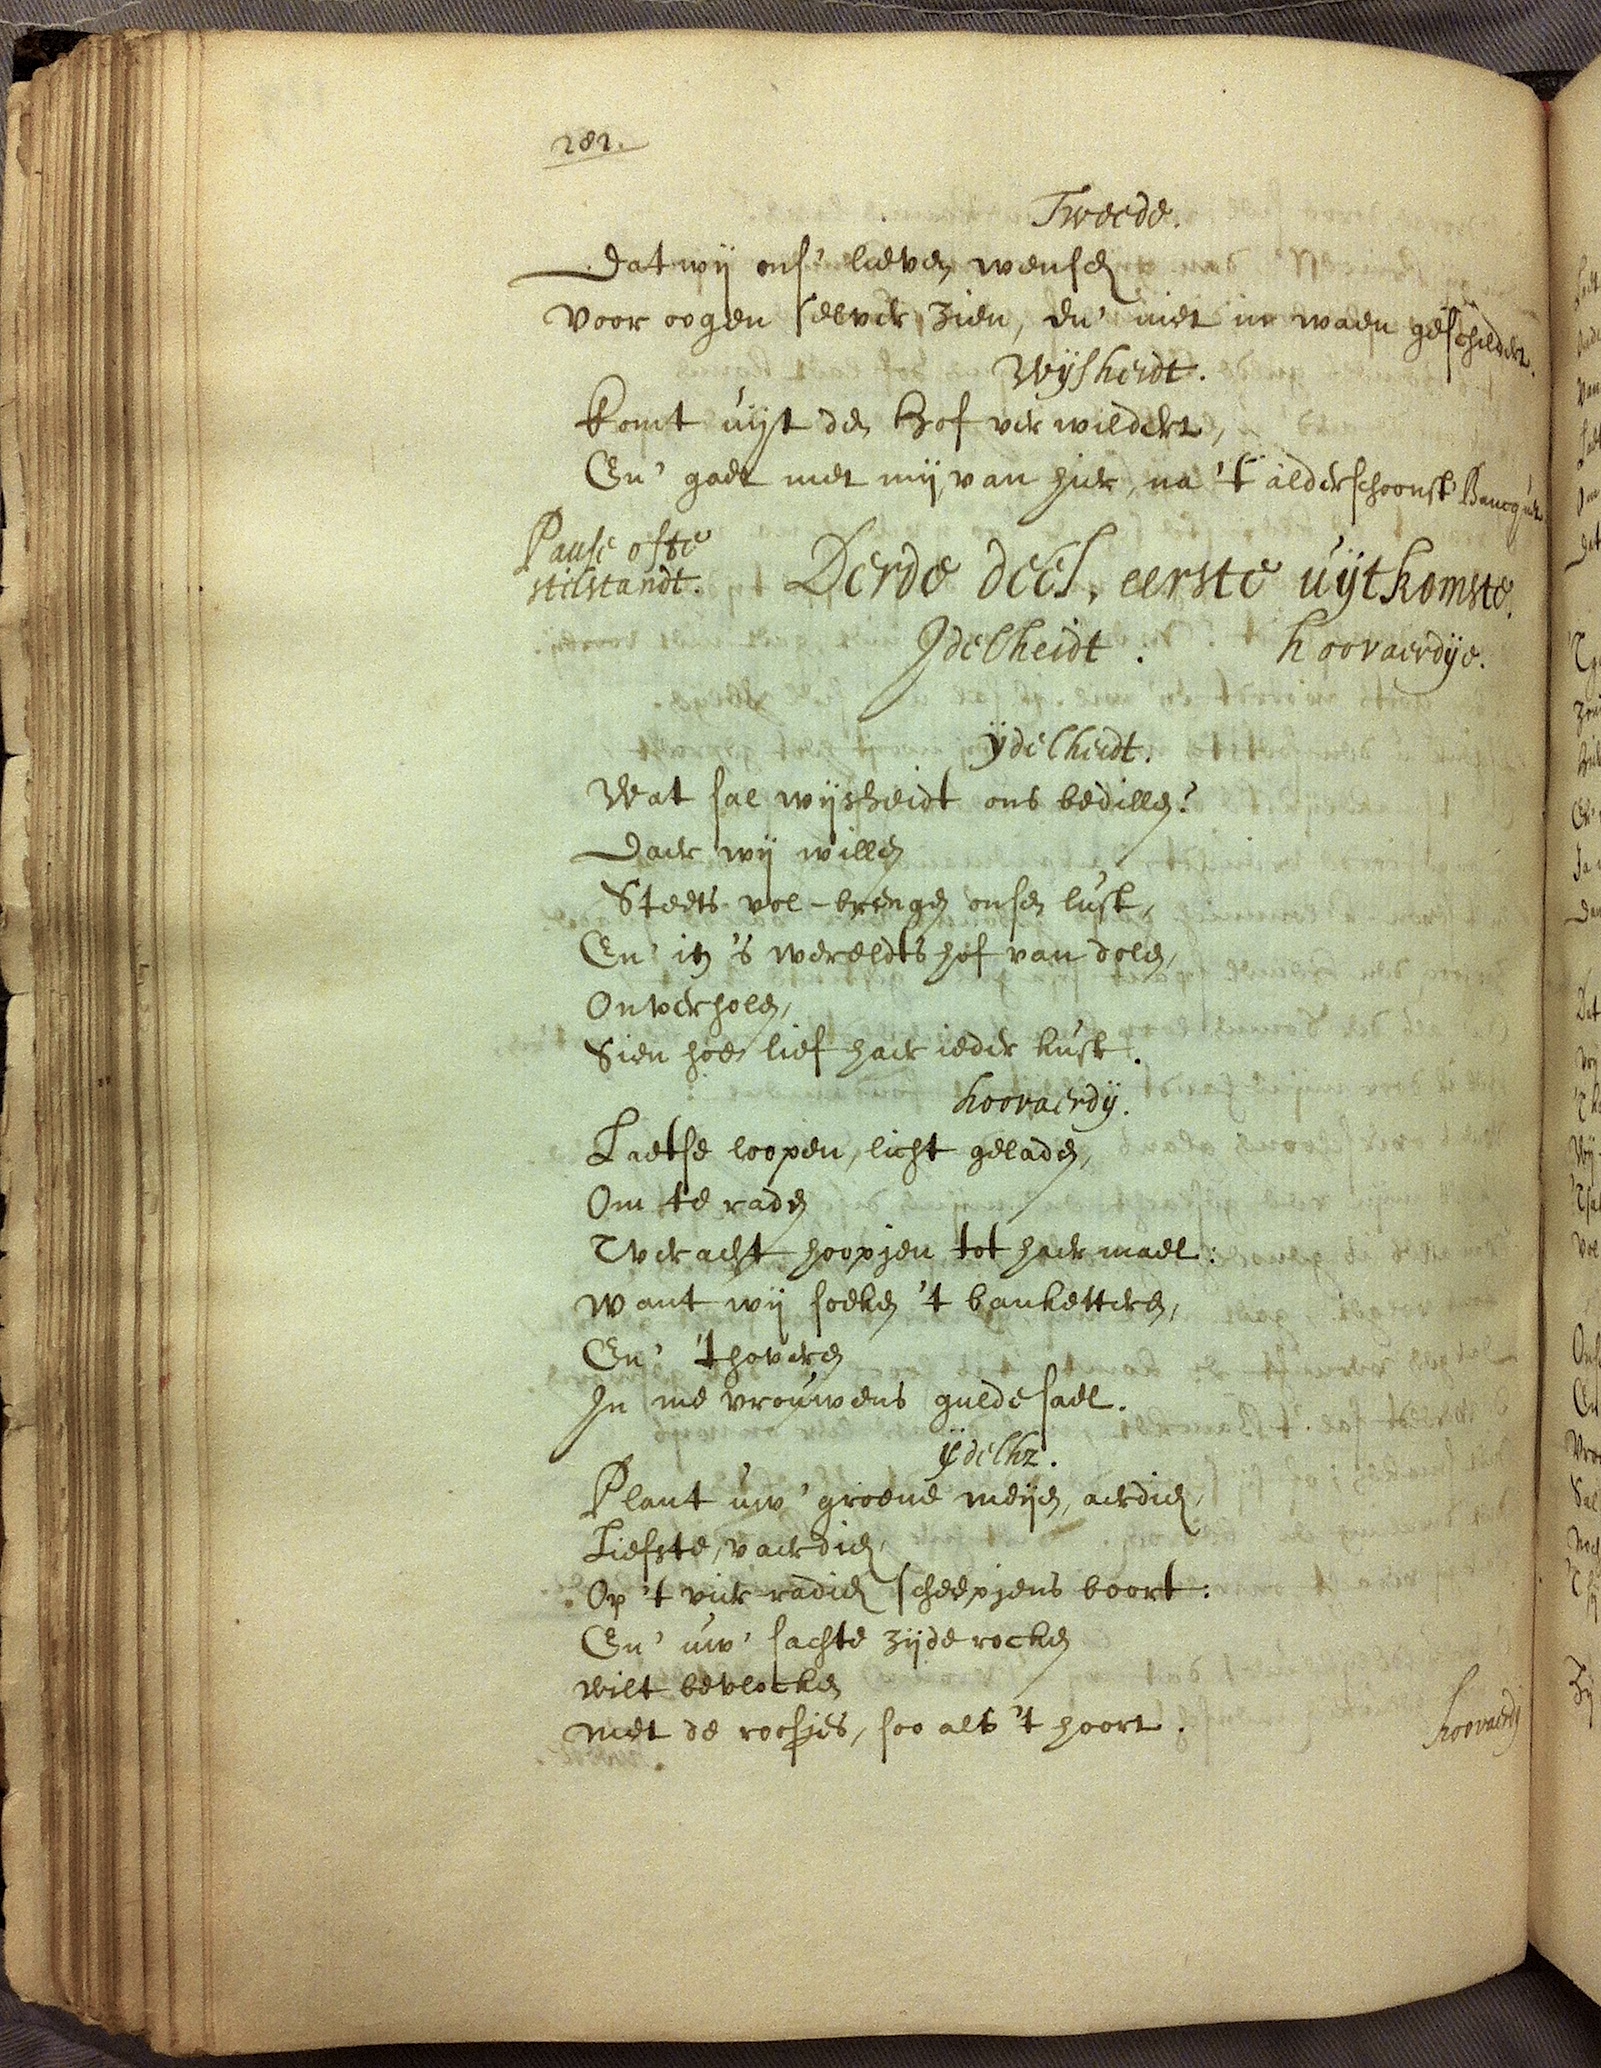 282.
Tweede.
Dat wij ons' lieven wensch
voor oogen selver zien, en' niet in waen geschildert.
Wijsheidt.
Komt uijt den Hof verwildert,
En' gaet met mij van hier, na 't alderschoonst Bancquet
Pause ofte
stilstandt.
Derde deel, eerste uijtkomste.
Jdelheidt. hoovaerdije.
ijdelheidt.
Wat sal wijsheidt ons bedillen?
Daer wij willen
Steets vol-brengen onsen lust,
En' in 's wereldts hof van dolen,
Onverholen,
Sien hoe lief haer ieder kust.
hoovaerdij.
Laetse loopen, licht geladen,
Om te raden
Tveracht hoopjen tot haer mael:
Want wij soeken 't banketteren,
En' 't hoveren
In me vrouwens gulde sael.
ijdelht.
Plant uw' groene meijen, aerdich,
Liefste, vaerdich,
Op 't vier-radich scheepjens boort:
En' uw' sachte zijde rocken
Wilt bevlocken
Met de roosjes, soo als 't hoort.
hoovaerdij